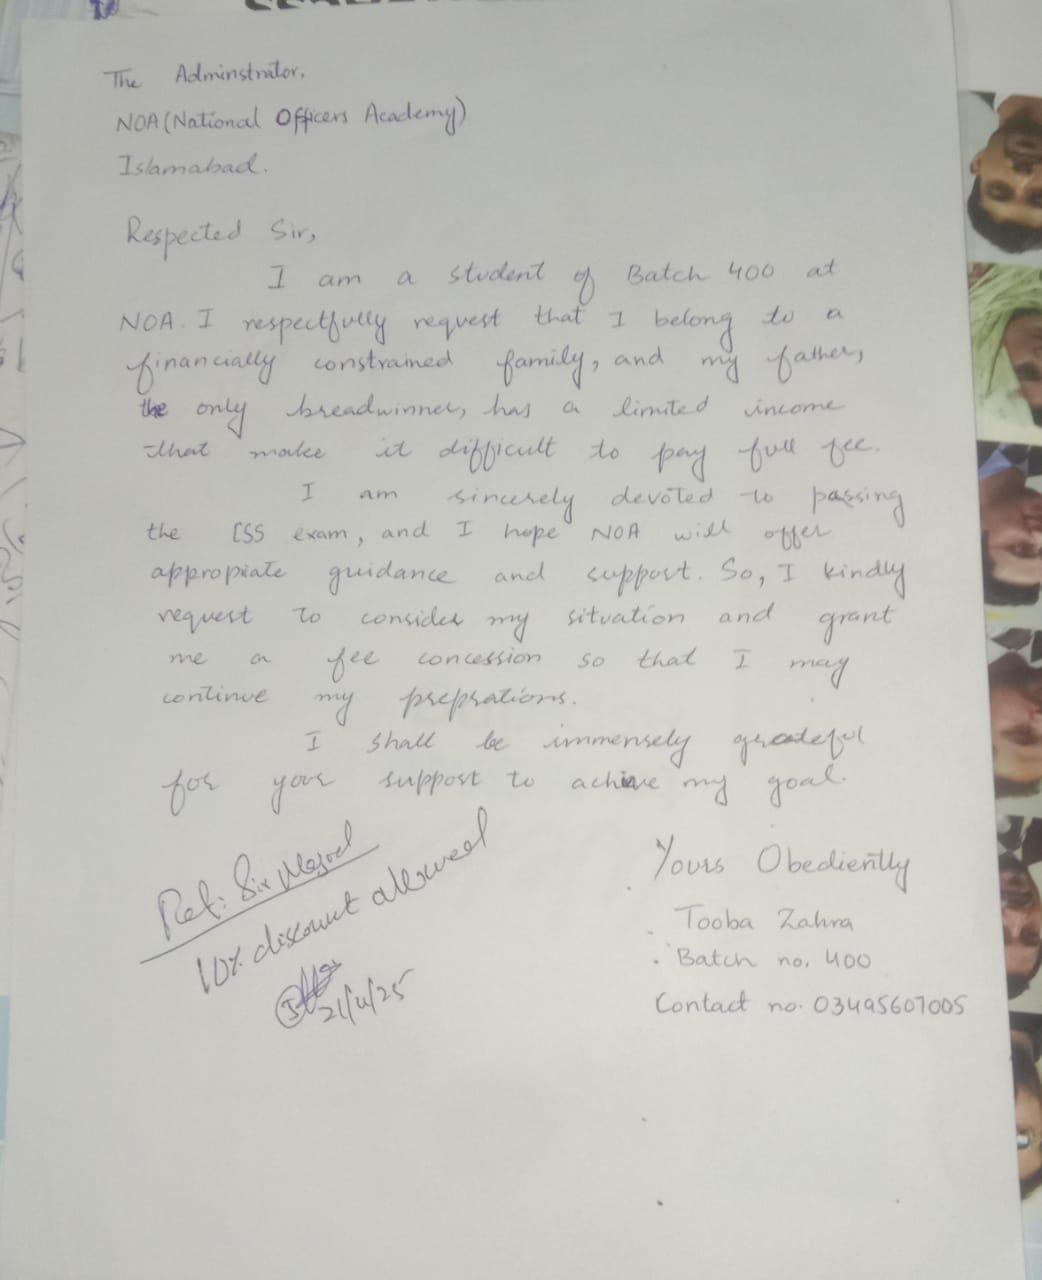 The Adminstrator,
NOA (National Officers Academy)
Islamabad.
Respected Sir,
I am a student of Batch 400 at
NOA. I respectfully request that I belong to a
financially constrained family, and my father,
the only breadwinner, has a limited income
that make it difficult to pay full fee.
I am sincerely devoted to passing
the CSS exam, and I hope NOA will offer
appropriate guidance and support. So, I kindly
request to consider my situation and grant
me a fee concession so that I may
continue my preprations.
I shall be immensely grateful
for your support to achieve my goal.
Ref: Sir
10% discount allowed
21/ /25
Yours Obediently
Tooba Zahra
Batch no. 400
Contact no. 03495607005